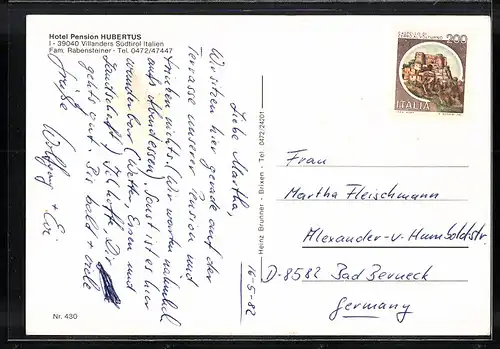 Hotel Pension HUBERTUS
I - 39040 Villanders Südtirol Italien
Fam. Rabensteiner - Tel. 0472/47447
16-5-82
Liebe Martha,
Wir sitzen hier gerade auf der
Terrasse unserer Pension und
trinken nichts. (Wir warten nämlich
aufs Abendessen) Sonst ist es hier
wunderbar (Wetter, Essen und
Landschaft) Ich hoffe, Dir
gehts gut. Bis bald + viele
Grüße Wolfgang + Evi
Nr. 430
Heinz Brunner - Brixen - Tel. 0472/24201
200
ITALIA
Frau
Martha Fleischmann
Alexander-v-Humboldstr.
D-8582 Bad Berneck
Germany